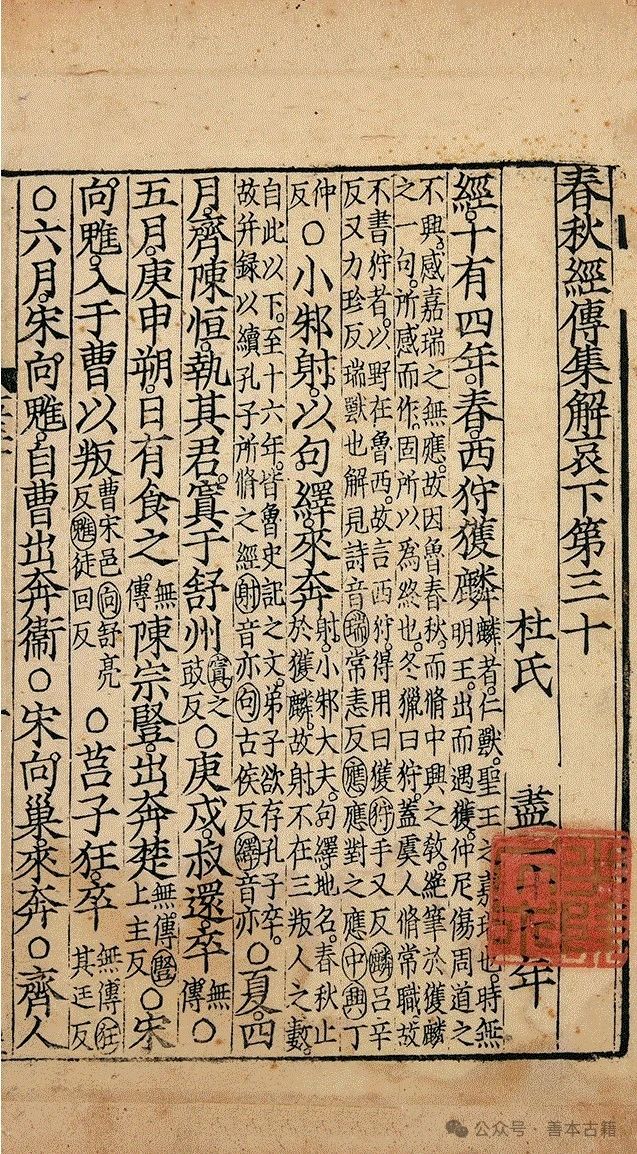 春秋經傳集解哀下第三十
杜氏 盡二十七年
經十有四年春西狩獲麟麟者仁獸聖王之嘉瑞也時無明王出而遇獲仲尼傷周道之
不興感嘉瑞之無應故因魯春秋而脩中興之教絕筆於獲麟
之一句所感而作固所以為終也冬獵曰狩蓋虞人脩常職故
不書狩者以野在魯西故言西狩得用曰獲狩手又反麟呂辛
反又力珍反瑞獸也解見詩音瑞常恚反應應對之應中興丁
仲反○小邾射以句繹來奔射小邾大夫句繹地名春秋止於獲麟故射不在三叛人之數
自此以下至十六年皆魯史記之文弟子欲存孔子卒故并録以續孔子所脩之經射音亦句古侯反繹音亦○夏四
月齊陳恒執其君寘于舒州寘之豉反○庚戌叔還卒無傳○
五月庚申朔日有食之無傳陳宗豎出奔楚無傳豎上主反○宋
向魋入于曹以叛曹宋邑向舒亮反魋徒回反○莒子狂卒無傳狂其迋反
○六月宋向魋自曹出奔衞○宋向巢來奔○齊人
公众号 · 善本古籍